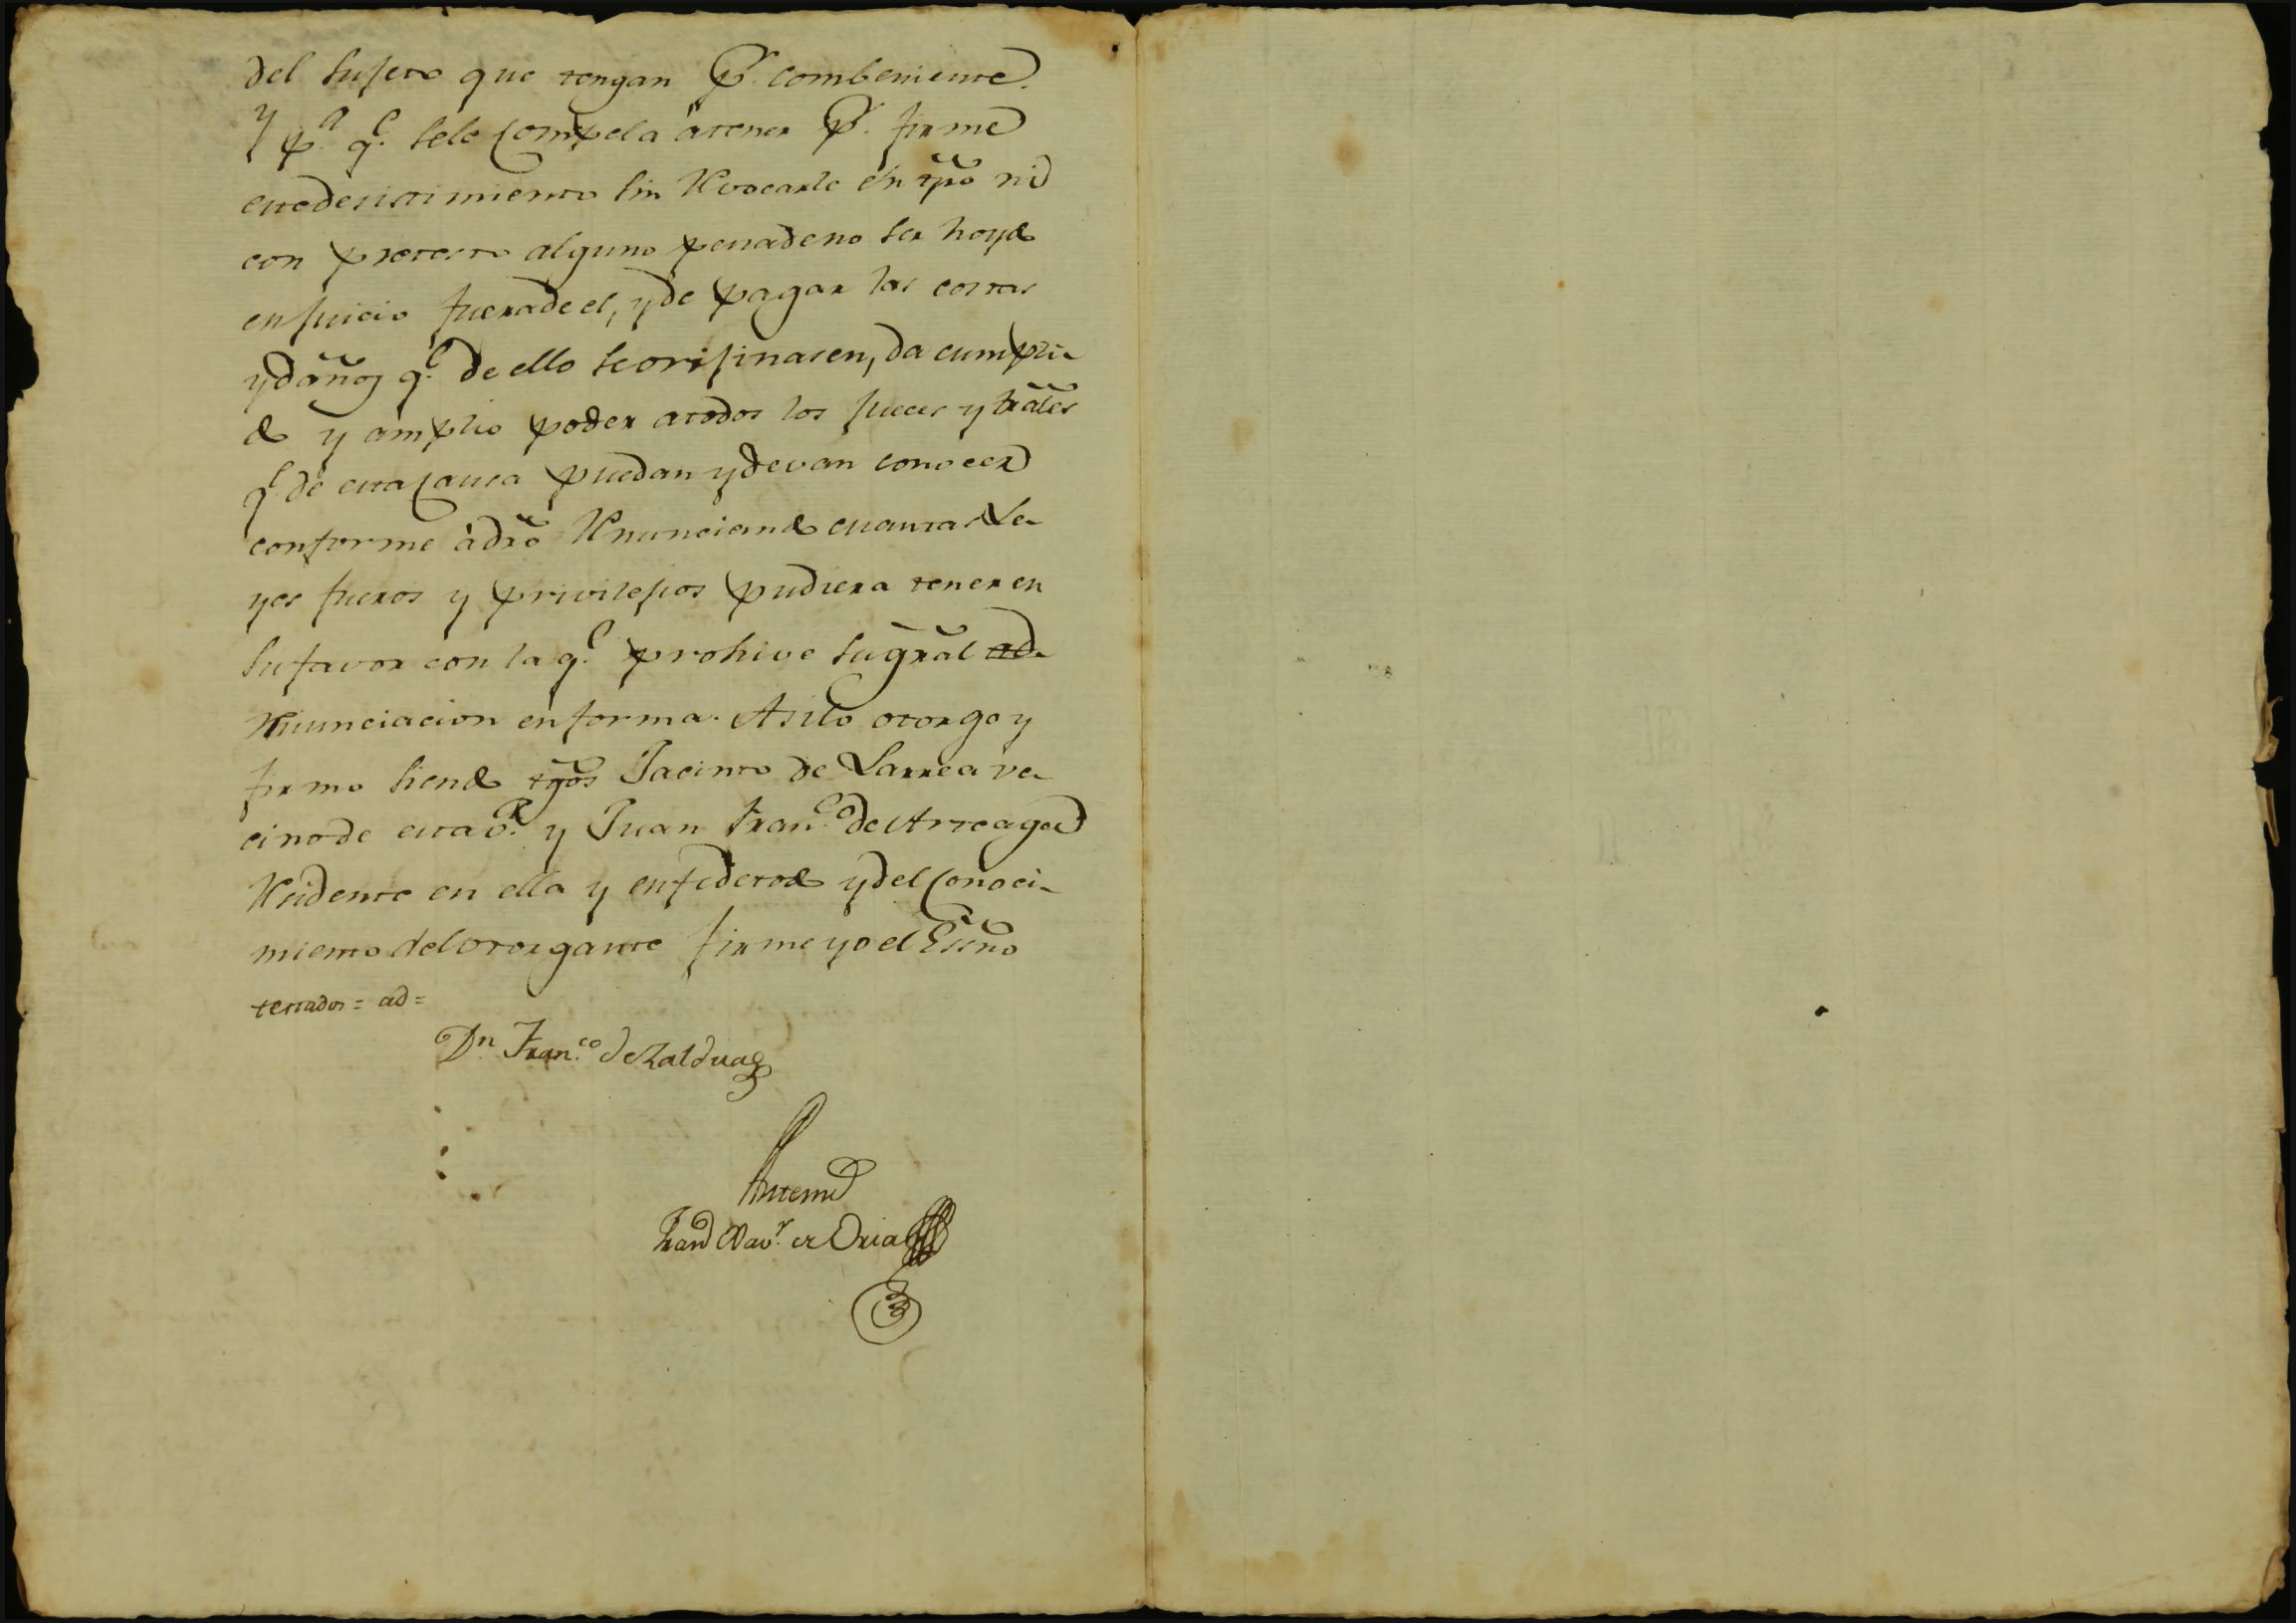 del sujeto que tengan pr. combeniente.
Y pa. qe. sele compela àtener pr. firme
estedesistimiento sin Revocarle en tpõ ni
con pretesto alguno penadeno ser hoydo
enjuicio fueradeel, yde pagar las costas
ydaños qe. de ello seorijinasen, da cumpli-
do y amplio poder atodos los jueces y trãles
qe. de estacausa puedan ydevan conocer
conforme àdrõ Renunciando cuantas Le-
yes fueros y privilejios pudiera tener en
sufavor con la qe. prohive su grãl ad-
Renunciacion en forma. Asilo otorgo y
firmo siendo tgõs Jacinto de Larrea ve-
cinode estava. y Juan Franco. de Arteaga
Residente en ella y enfedetodo ydel conoci-
miento delotorgante firme yo el Essno
testados = ad =
Dn. Franco. de Zalduag
Antemi